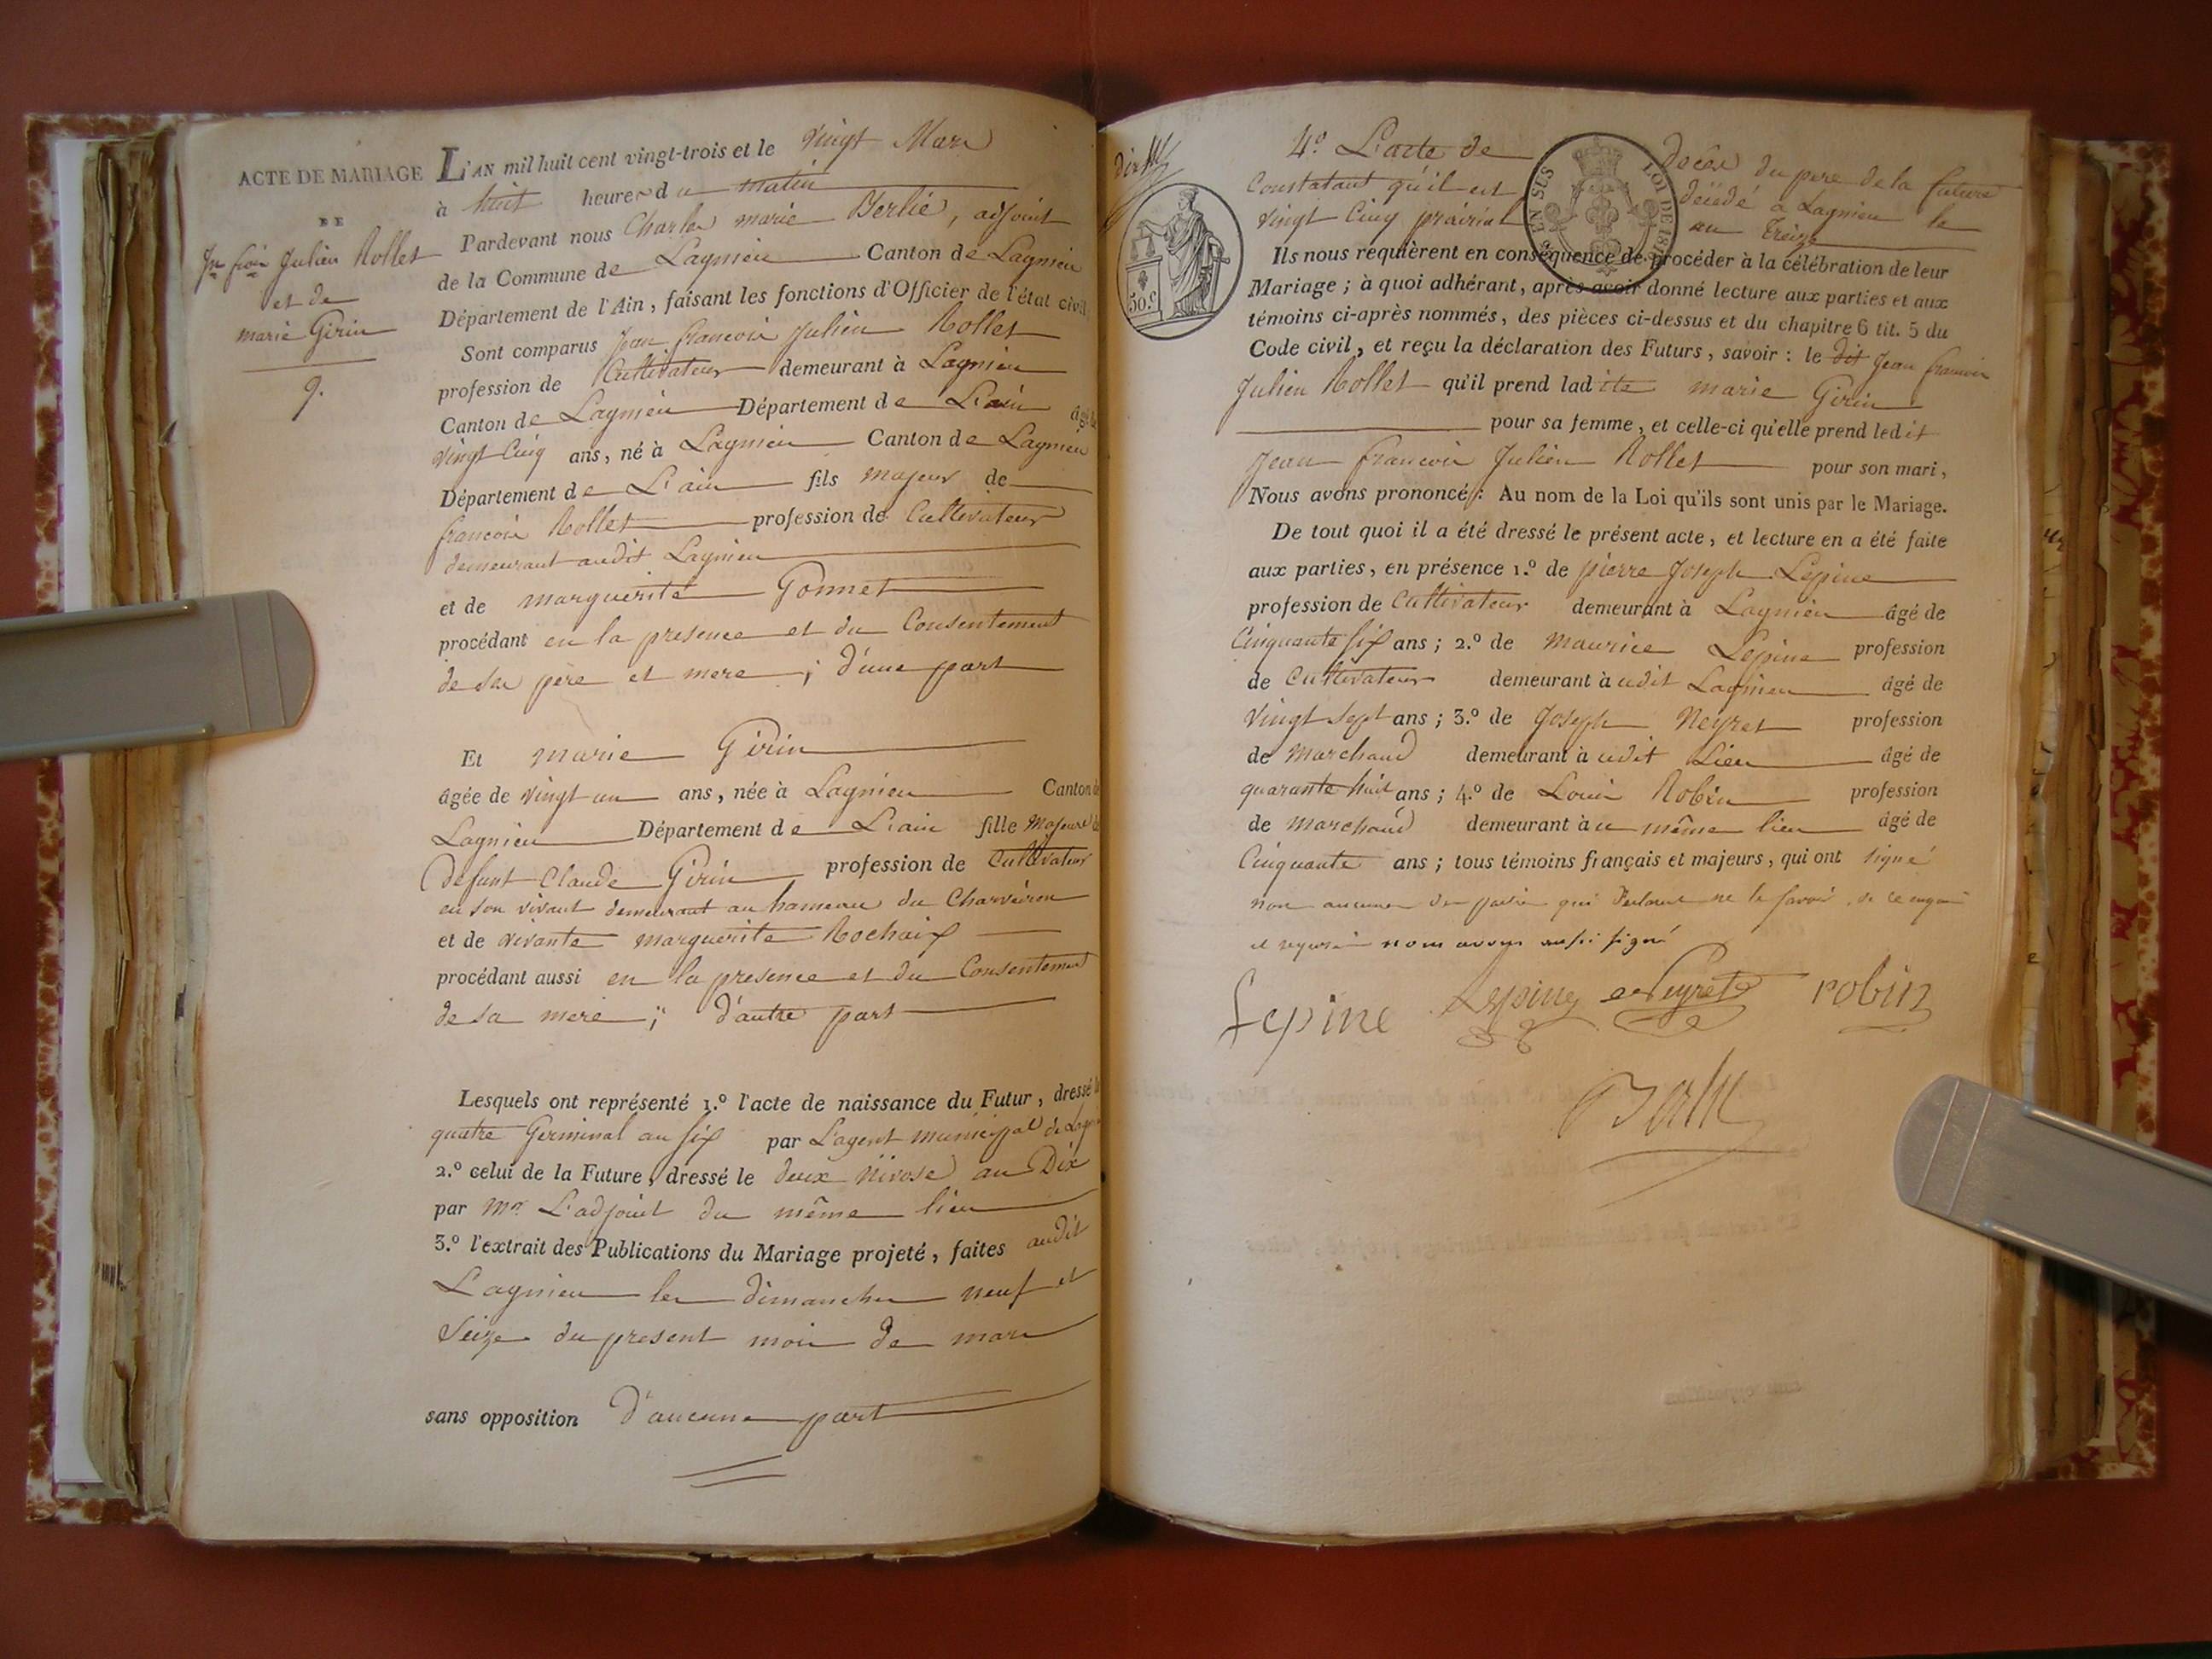 ACTE DE MARIAGE
DE
Jn. fcois Julien Rollet
et de
marie Girin
9.
L'AN mil huit cent vingt-trois et le vingt Mars
à huit heures du matin
Pardevant nous Charles marie Berlié, adjoint
de la Commune de Lagnieu Canton de Lagnieu
Département de l'Ain, faisant les fonctions d'Officier de l'état civil
Sont comparus Jean francois Julien Rollet
profession de Cultivateur demeurant à Lagnieu
Canton de Lagnieu Département de L'ain âgé de
vingt Cinq ans, né à Lagnieu Canton de Lagnieu
Département de L'ain fils majeur de
francois Rollet profession de Cultivateur
demeurant audit Lagnieu
et de marguerite Gonnet
procédant en la presence et du Consentement
de ses père et mere ; d'une part
Et marie Girin
âgée de vingt un ans, née à Lagnieu Canton de
Lagnieu Département de L'ain fille majeure de
Defunt Claude Girin profession de Cultivateur
en son vivant demeurant au hameau du Charveiron
et de vivante marguerite Rochaix
procédant aussi en la presence et du Consentement
de sa mere ; d'autre part
Lesquels ont représenté 1.º l'acte de naissance du Futur, dressé le
quatre Germinal an six par L'agent municipal de Lagnieu
2.º celui de la Future, dressé le deux nivose an Dix
par Mr. L'adjoint du même lieu
3.º l'extrait des Publications du Mariage projeté, faites audit
Lagnieu les dimanches neuf et
Seize du present mois de mars
sans opposition D'aucune part
dix
30 c.
4º L'acte de Décès du pere de la future
EN SUS LOI DE 181
Constatant qu'il est décédé a Lagnieu le
vingt Cinq prairial an treize
Ils nous requièrent en conséquence de procéder à la célébration de leur
Mariage ; à quoi adhérant, après avoir donné lecture aux parties et aux
témoins ci-après nommés, des pièces ci-dessus et du chapitre 6 tit. 5 du
Code civil, et reçu la déclaration des Futurs, savoir : le dit Jean francois
Julien Rollet qu'il prend ladite marie Girin
pour sa femme, et celle-ci qu'elle prend ledit
Jean francois Julien Rollet pour son mari,
Nous avons prononcé : Au nom de la Loi qu'ils sont unis par le Mariage.
De tout quoi il a été dressé le présent acte, et lecture en a été faite
aux parties, en présence 1.º de pierre Joseph Lepine
profession de Cultivateur demeurant à Lagnieu âgé de
Cinquante six ans ; 2.º de maurice Lepine profession
de Cultivateur demeurant à udit Lagnieu âgé de
vingt sept ans ; 3.º de Joseph Neyret profession
de marchand demeurant à udit Lieu âgé de
quarante huit ans ; 4.º de Louis Robin profession
de marchand demeurant à u même lieu âgé de
Cinquante ans ; tous témoins français et majeurs, qui ont signé
non aucunes des parties qui declarent ne le savoir de ce enquis
et requis nous avons aussi signé
Lepine Lepine Neyret robin
Berlié